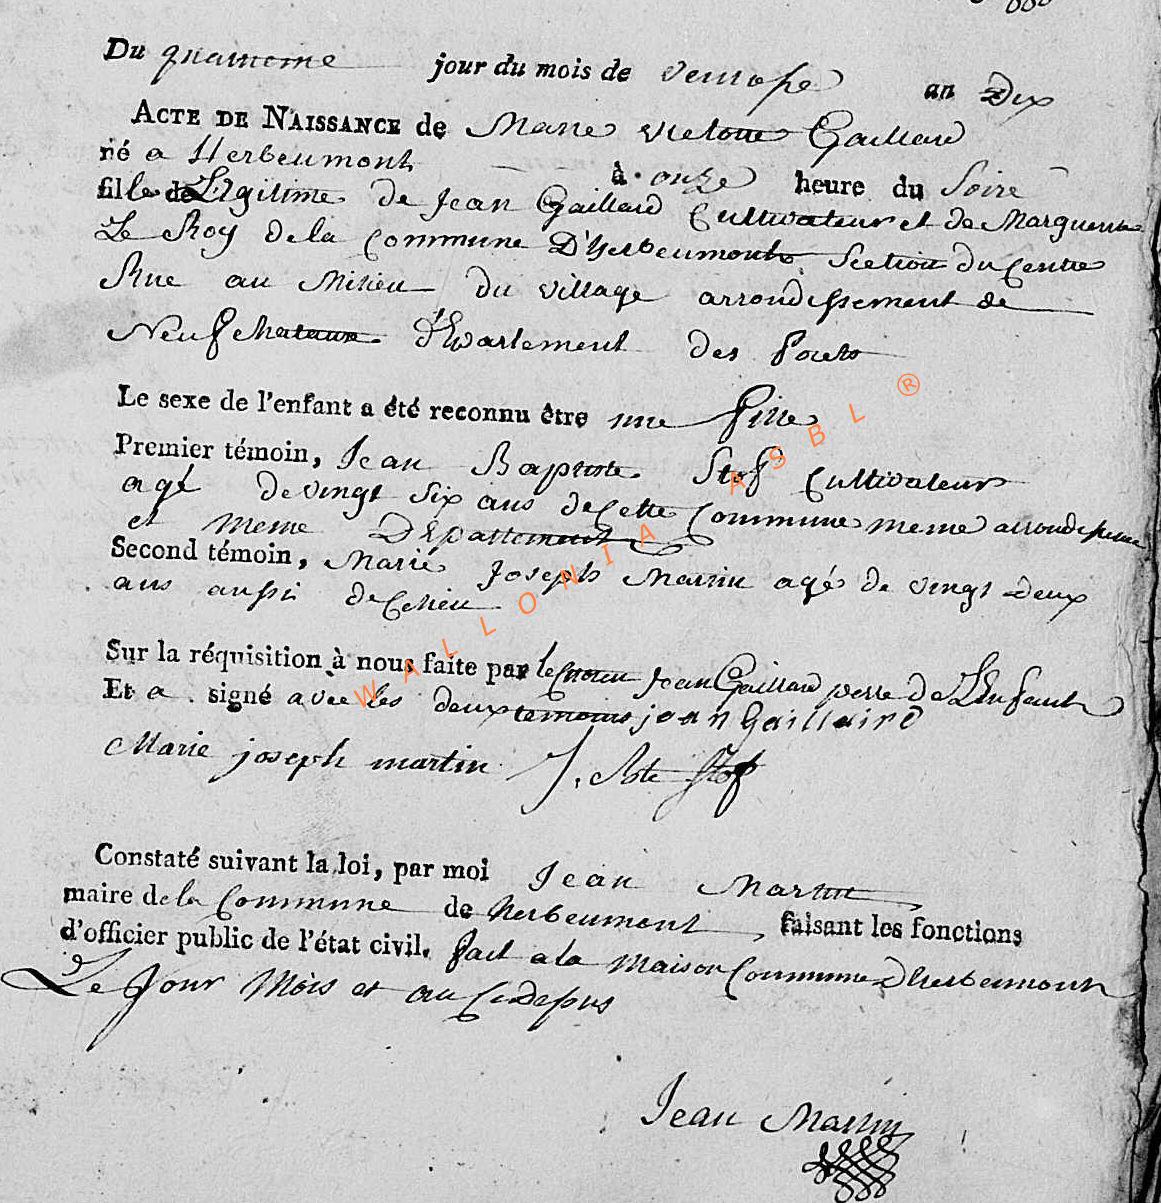 Du quatrieme jour du mois de ventose an Dix
ACTE DE NAISSANCE de Marie victoire Gaillard
né a Herbeumont à onze heure du Soire
fille de Legitime de Jean Gaillard Cultivateur et de Marguerite
Le Roy de la Commune D'herbeumont Section du Centre
Rue au Milieu du village arrondissement de
Neufchataux Departement des Forets
Le sexe de l'enfant a été reconnu être une fille
Premier témoin, Jean Baptiste Stof Cultivateur
agé de vingt Six ans de Cette Commune meme arrondissement
et meme Departement
Second témoin, Marie Joseph Martin agé de vingt deux
ans aussi de Ce lieu
Sur la réquisition à nous faite par le Jean Gaillard perre de L'Enfant
Et a signé avec les deux temoins jean Gaillaird
Marie joseph martin J. Bte Stof
Constaté suivant la loi, par moi Jean Martin
maire de la Commune de herbeumont faisant les fonctions
d'officier public de l'état civil. fait a la Maison Commune D'herbeumont
Le Jour Mois et an Cidessus
Jean Martin
WALLONIA ASBL ®